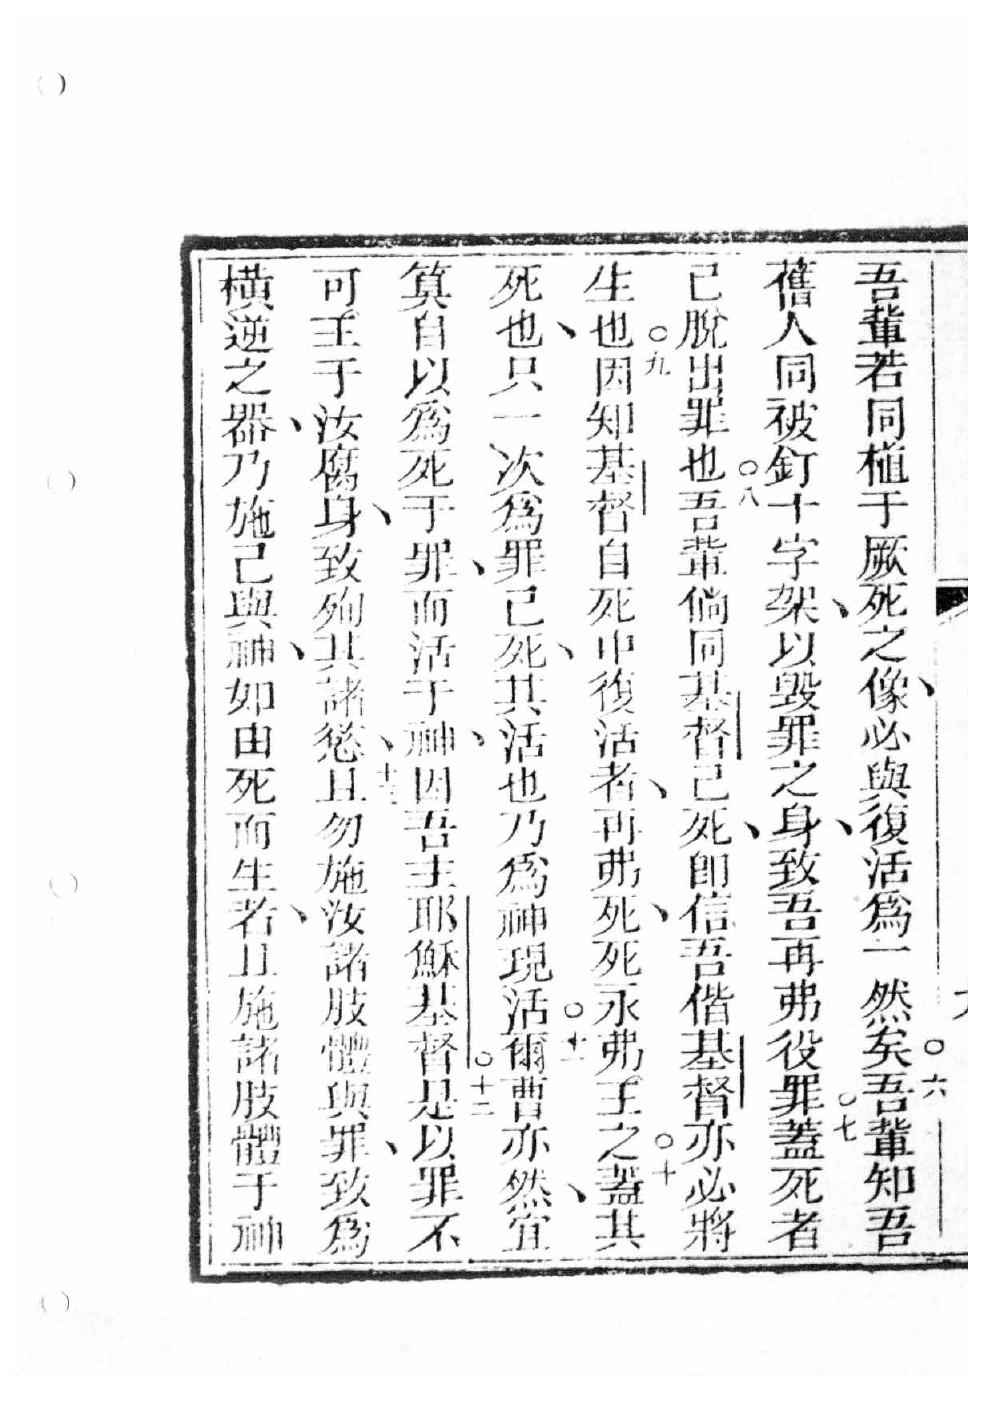 吾輩若同植于厥死之像、必與復活爲一然矣○六吾輩知吾
舊人同被釘十字架、以毀罪之身、致吾再弗役罪○七蓋死者
已脫出罪也○八吾輩倘同基督已死、卽信吾偕基督亦必將
生也○九因知基督自死中復活者、再弗死、死永弗王之○十蓋其
死也、只一次爲罪已死、其活也乃爲神現活○十一爾曹亦然、宜
算自以爲死于罪、而活于神、因吾主耶穌基督○十二是以罪不
可王于汝腐身、致殉其諸慾、十三且勿施汝諸肢體與罪、致爲
橫逆之器、乃施己與神、如由死而生者、且施諸肢體于神